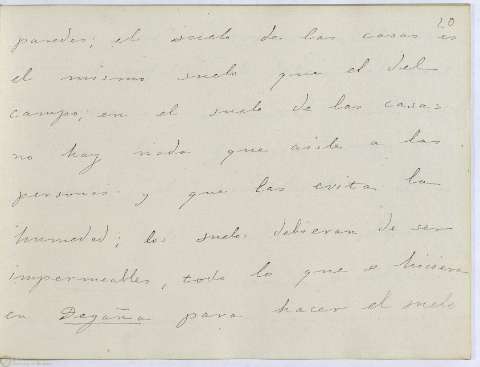 20
paredes; el suelo de las casas es
el mismo suelo que el del
campo; en el suelo de las casas
no hay nada que aisle a las
personas y que las evita la
humedad; los suelos debieran de ser
impermeables, todo lo que se hiciera
en Degaña para hacer el suelo